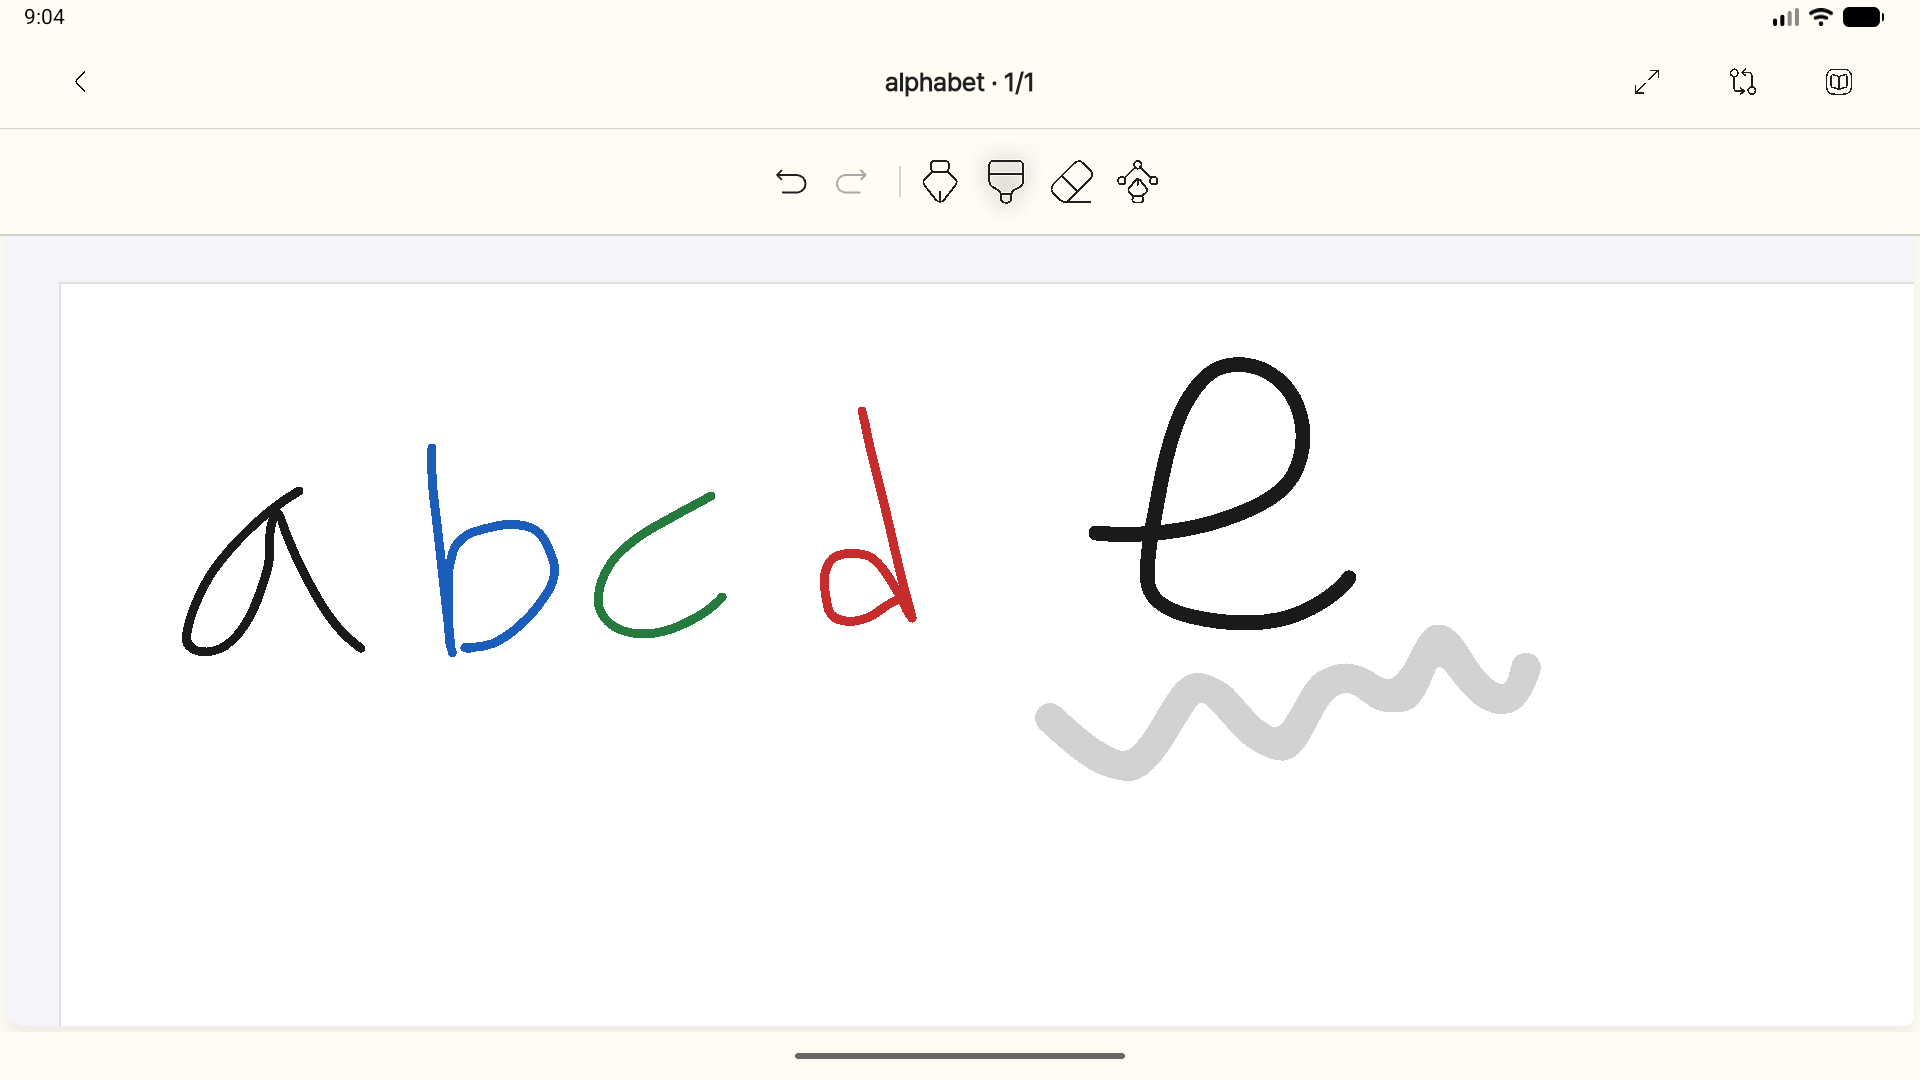 9:04
alphabet · 1/1
a b c d e